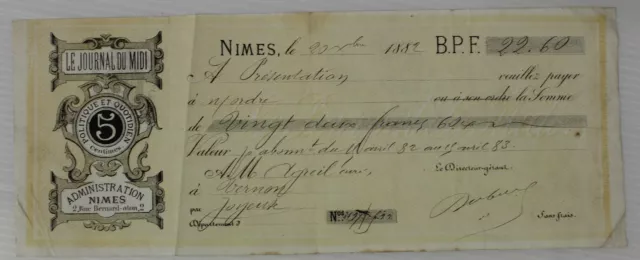 LE JOURNAL DU MIDI
POLITIQUE ET QUOTIDIEN
5
centimes
ADMINISTRATION
NIMES
2, Rue Bernard-aton, 2
NIMES, le 1882 B.P.F. 22.60
A Présentation veuillez payer
à m/ordre ou à son ordre la Somme
de Vingt deux francs 60
Valeur p. abonnt du 15 avril 82 au 15 avril 83.
A M. Le Directeur-gérant
à Vernon
par Joyeuse
Département d Nos Sans frais.